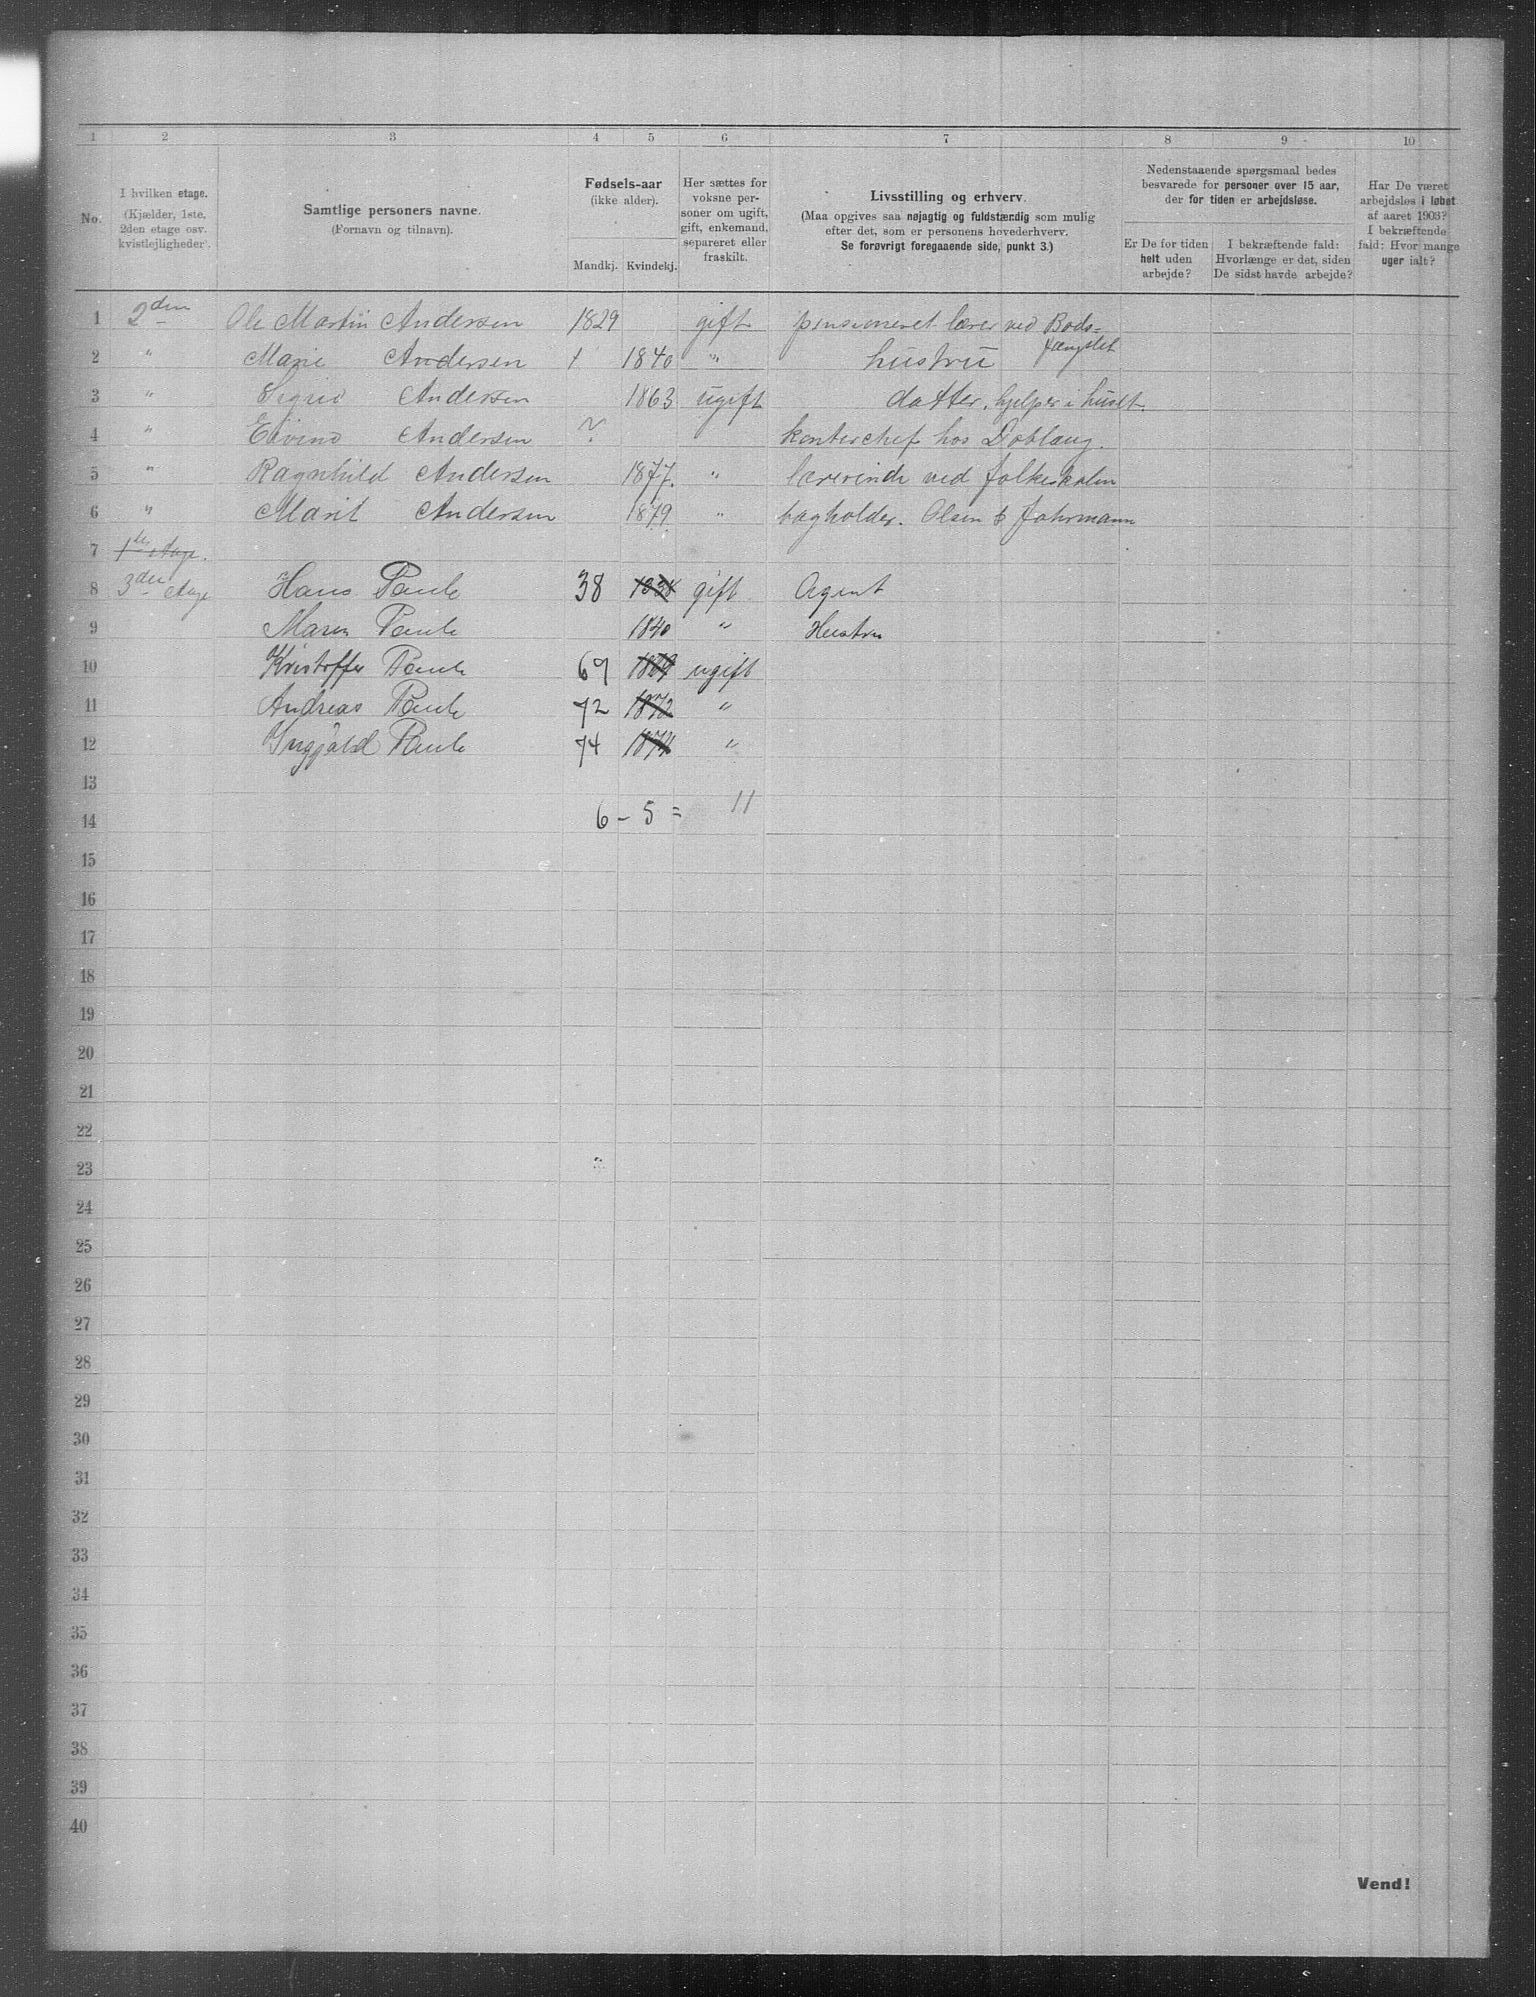 1 2 3 4 5 6 7 8 9 10
No. I hvilken etage. (Kjælder, 1ste, 2den etage osv. kvistlejligheder). Samtlige personers navne. (Fornavn og tilnavn). Fødsels-aar (ikke alder). Mandkj. Kvindekj. Her sættes for voksne personer om ugift, gift, enkemand, separeret eller fraskilt. Livsstilling og erhverv. (Maa opgives saa nøjagtig og fuldstændig som mulig efter det, som er personens hovederhverv. Se forøvrigt foregaaende side, punkt 3.) Nedenstaaende spørgsmaal bedes besvarede for personer over 15 aar, der for tiden er arbejdsløse. Er De for tiden helt uden arbejde? I bekræftende fald: Hvorlænge er det, siden De sidst havde arbejde? Har De været arbejdsløs i løbet af aaret 1903? I bekræftende fald: Hvor mange uger ialt?
1 2den Ole Martin Andersen 1829 gift pensioneret lærer ved Bodsfængslet
2 " Marie Andersen 1840 " hustru
3 " Sigrid Andersen 1863 ugift datter, hjelper i huset.
4 " Eivind Andersen ? kontorchef hos Dobloug.
5 " Ragnhild Andersen 1877. " lærerinde ved folkeskolen
6 " Marit Andersen 1879 " bogholder. Olsen & Fahrmann
7 1ste etage.
8 3die etage Hans Paule 38 1838 gift Agent
9 Maren Paule 1840 " Hustru
10 Kristoffer Paule 69 1869 ugift
11 Andreas Paule 72 1872 "
12 Ingjald Paule 74 1874 "
13
14 6 - 5 = 11
15
16
17
18
19
20
21
22
23
24
25
26
27
28
29
30
31
32
33
34
35
36
37
38
39
40
Vend!